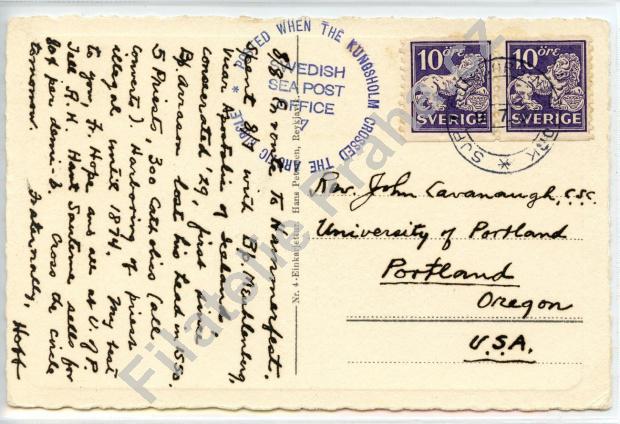 POSTED WHEN THE KUNGSHOLM CROSSED THE ARCTIC CIRCLE *
SWEDISH
SEA POST
OFFICE
7
10 ÖRE
SVERIGE
10 ÖRE
SVERIGE
8/8 Enroute to Hammerfest.
Spent 8/7 with Bp. Meulenberg,
Vicar Apostolic of Iceland
consecrated '29, first since
Bp. Arason lost his head in 1550.
5 Priests, 300 Catholics (all
converts). Harboring of priess
illegal until 1874. My best
to you, Fr. Hope and all at U. of P.
Tell R. H. Haut Sauterne sells for
80¢ per demi-b. Cross the circle
tomorrow. Fraternally,
Hoff
Nr. 4 - Einkarjettur: Hans Petersen, Reykjavik
Rev. John Cavanaugh, C.S.C.
University of Portland
Portland
Oregon
U.S.A.
Filatelie Praha.cz